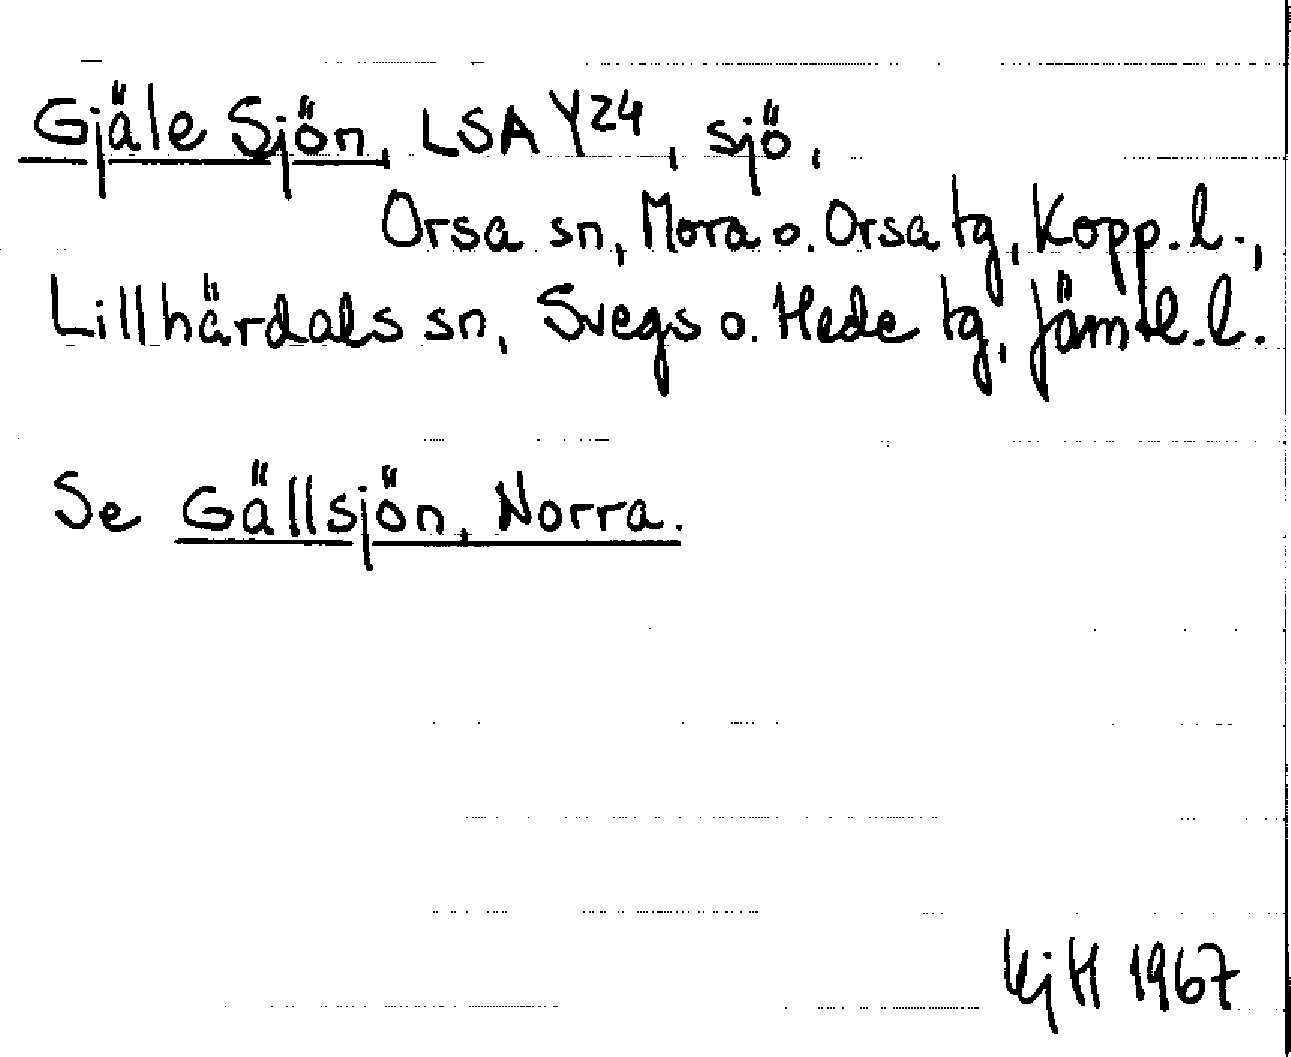 Gjäle Sjön, LSA Y24, sjö,
Orsa sn, Mora o. Orsa tg, Kopp. l.,
Lillhärdals sn, Svegs o. Hede tg, Jämtl. l.
Se Gällsjön, Norra.
KjH 1967